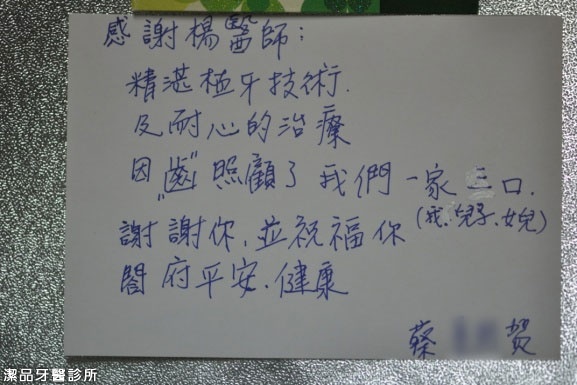 感謝楊醫師：
精湛植牙技術.
及耐心的治療
因"齒"照顧了我們一家三口.
(我.兒子.女兒)
謝謝你,並祝福你
閤府平安.健康
蔡 賀
潔品牙醫診所